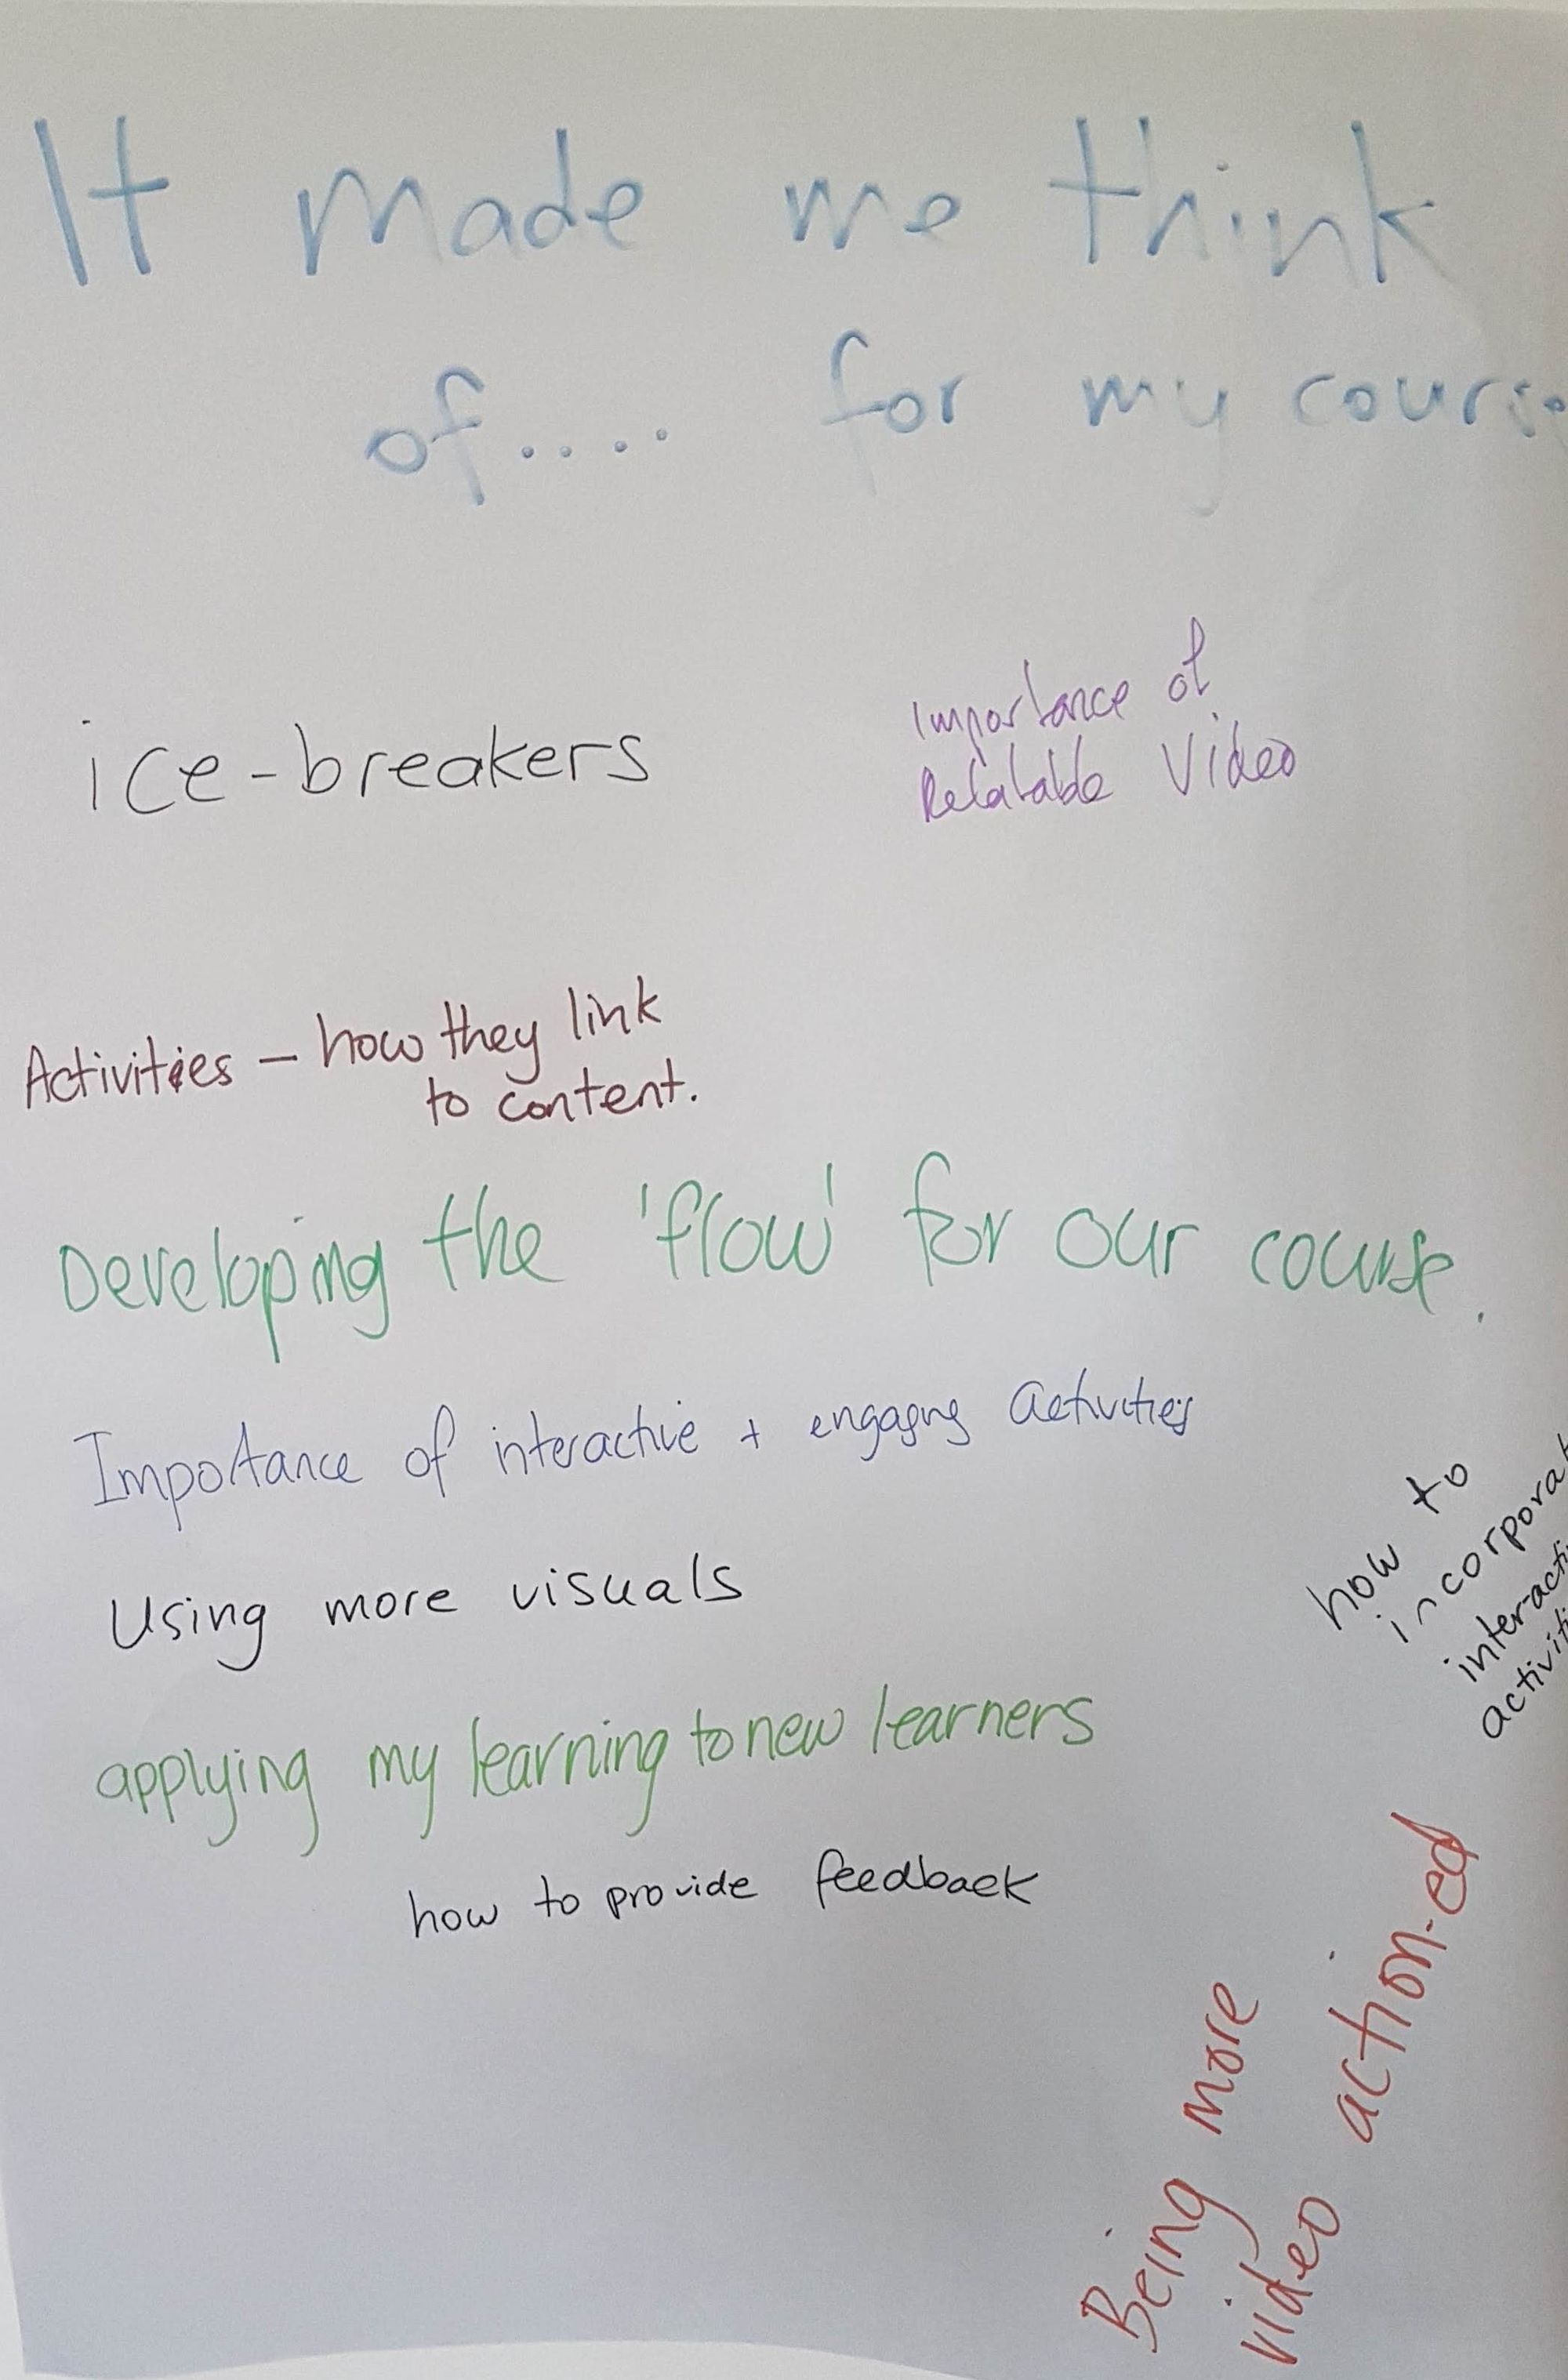 It made me think
of.... for my course
ice-breakers
Importance of
Relatable Video
Activities – how they link
to content.
Developing the 'flow' for our course.
Importance of interactive + engaging activities
how to
incorporat
interacti
activiti
Using more visuals
applying my learning to new learners
how to provide feedback
Being more
video action-ed